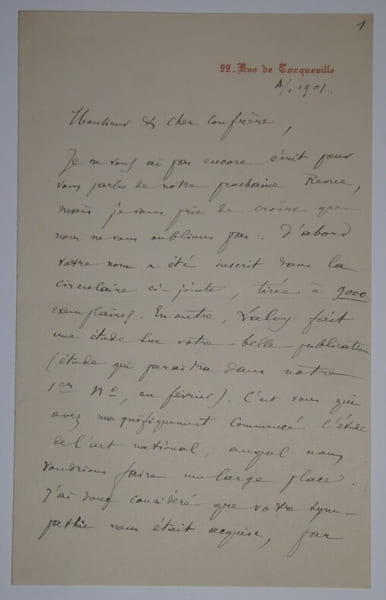 1
22, Rue de Tocqueville
4/1 1901.
Monsieur & cher confrère,
Je ne vous ai pas encore écrit pour
vous parler de notre prochaine Revue,
mais je vous prie de croire que
nous ne vous oublions pas. D'abord
votre nom a été inscrit dans la
circulaire ci-jointe, tirée à 9000
exemplaires. En outre, Laloy fait
une étude sur votre belle publication
(étude qui paraîtra dans notre
1er No, en février). C'est vous qui
avez magnifiquement commencé l'étude
de l'art national, auquel nous
voudrions faire une large place.
J'ai donc considéré que votre sym-
pathie nous était acquise, par